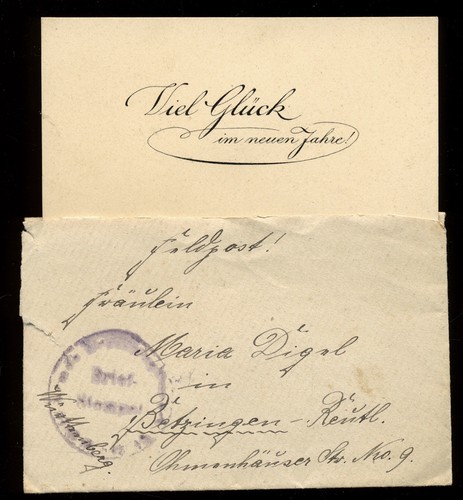 Viel Glück
im neuen Jahre!
Feldpost!
Fräulein
Maria Digel
in
Betzingen-Reutl.
Ohmenhäuser Str. No. 9.
Brief-
Stempel
Württemberg.